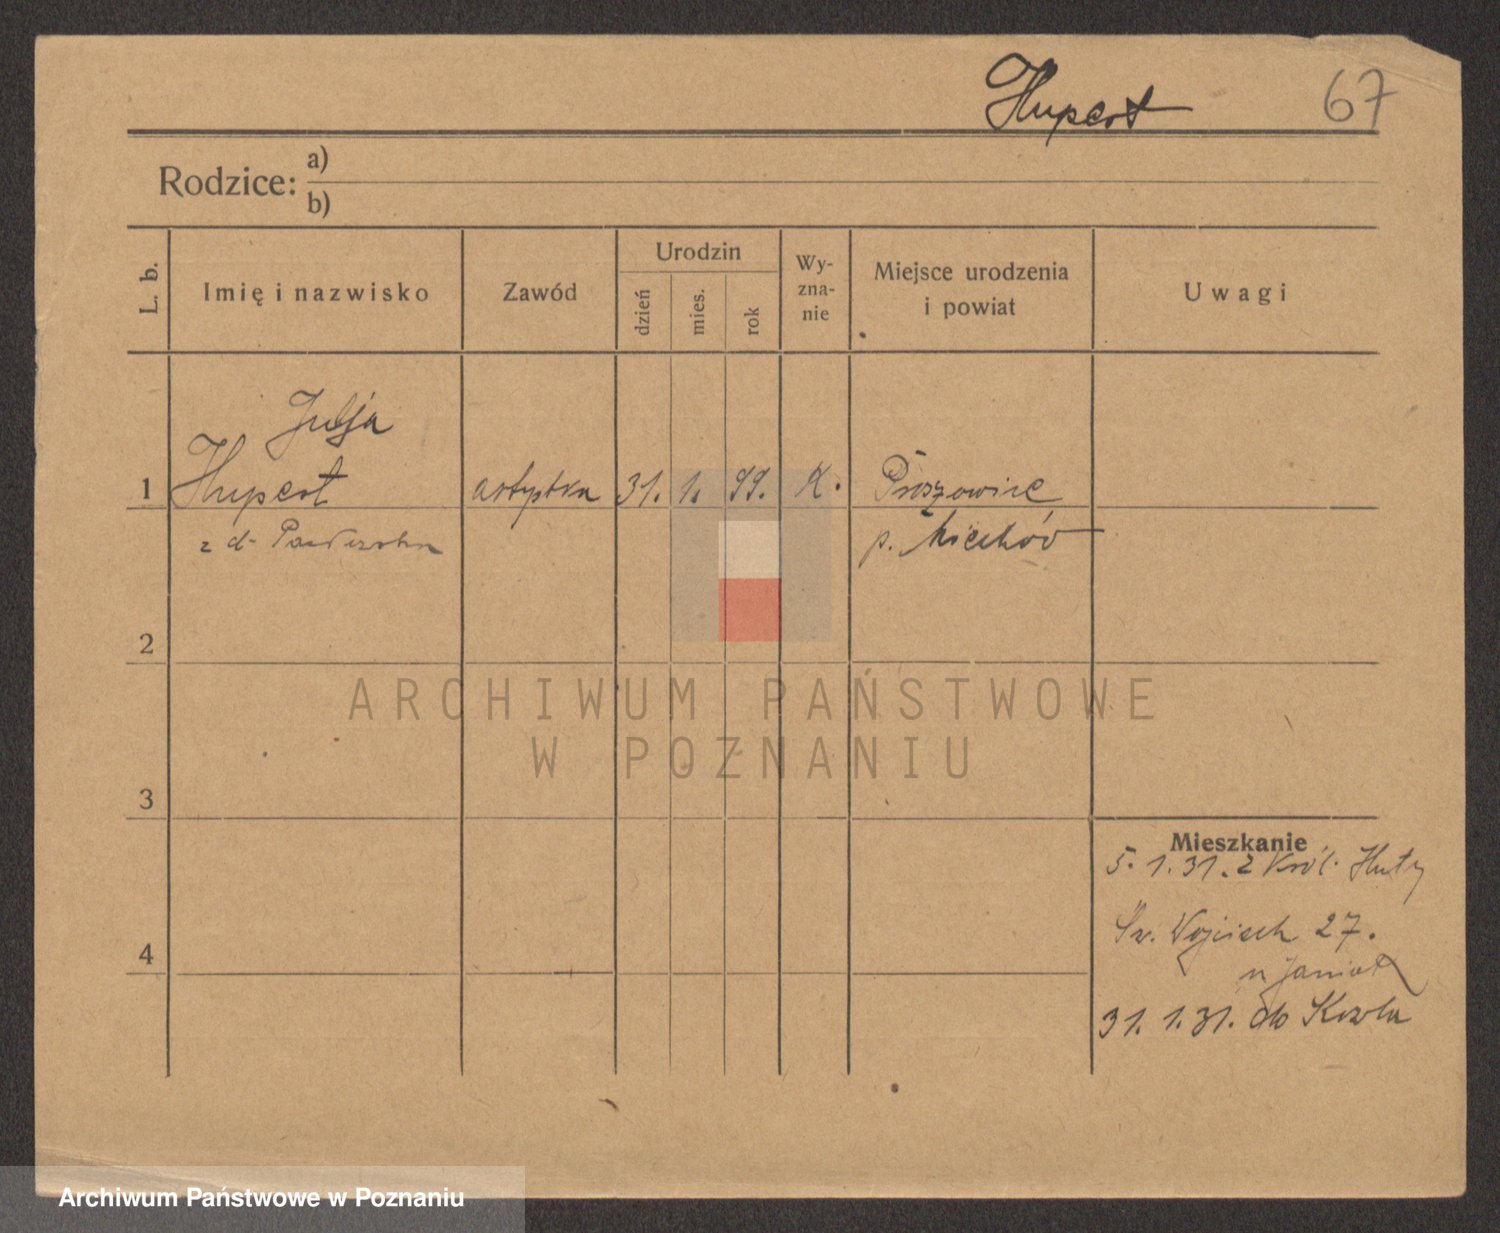 Hupert 67
Rodzice: a)
b)
L. b.
Imię i nazwisko
Zawód
Urodzin
dzień
mies.
rok
Wy-
zna-
nie
Miejsce urodzenia
i powiat
Uwagi
Julja
1 Hupert artystka 31. 1. 99. K. Proszowice
z d. p. Miechów
2
ARCHIWUM PAŃSTWOWE
W POZNANIU
3
Mieszkanie
5. 1. 31. z Król. Huty
Św. Wojciech 27.
4
31. 1. 31. do
Archiwum Państwowe w Poznaniu